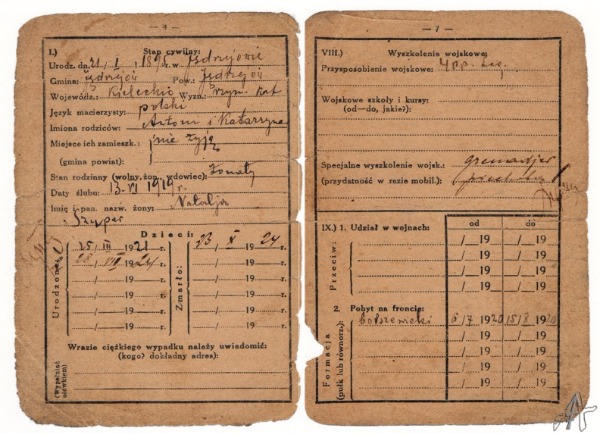 — 4 —
I.) Stan cywilny:
Urodz. dn. 21/ I 1895 r. w Jędrzejowie
Gmina: Jędrzejów Pow.: Jędrzejów
Wojewódz.: Kieleckie Wyzn.: rzym. kat
Język macierzysty: polski
Imiona rodziców: Antoni i Katarzyna
Miejsce ich zamieszk.: nie żyją
(gmina powiat):
Stan rodzinny (wolny, żon., wdowiec): żonaty
Daty ślubu: 13-VI 1919 r.
Imię i pan. nazw. żony: Natalja
Szyper
Dzieci:
Urodzone:
25/ III 1921 r.
28/ VIII 1924 r.
/ —19 — r.
/ —19 — r.
/ —19 — r.
/ —19 — r.
Zmarło:
23 X 1924 r.
/ —19 — r.
/ —19 — r.
/ —19 — r.
/ —19 — r.
/ —19 — r.
Wrazie ciężkiego wypadku należy uwiadomić:
(kogo? dokładny adres):
(Wypełniać ołówkiem)
— 7 —
VIII.) Wyszkolenie wojskowe:
Przysposobienie wojskowe: 4 p.p. Leg.
Wojskowe szkoły i kursy:
(od—do, jakie?):
Specjalne wyszkolenie wojsk.: grenadjer
(przydatność w rezie mobil.)
IX.) 1. Udział w wojnach:
od do
Przeciw:
/ 19 / 19
/ 19 / 19
/ 19 / 19
/ 19 / 19
2. Pobyt na froncie:
bolszewicki 6/7 1920 15/8 1920
Formacja
(pułk lub równorz.):
/ 19 / 19
/ 19 / 19
/ 19 / 19
/ 19 / 19